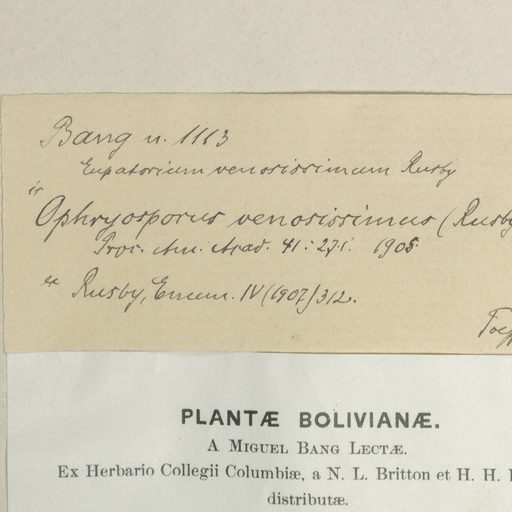 Bang n. 1113
Eupatorium venosissimum Rusby
is
Ophryosporus venosissimus (Rusby
Proc. Am. Acad. 41: 271. 1905
ex Rusby, Enum. IV (1907) 312.
PLANTÆ BOLIVIANÆ.
A MIGUEL BANG LECTÆ.
Ex Herbario Collegii Columbiæ, a N. L. Britton et H. H.
distributæ.